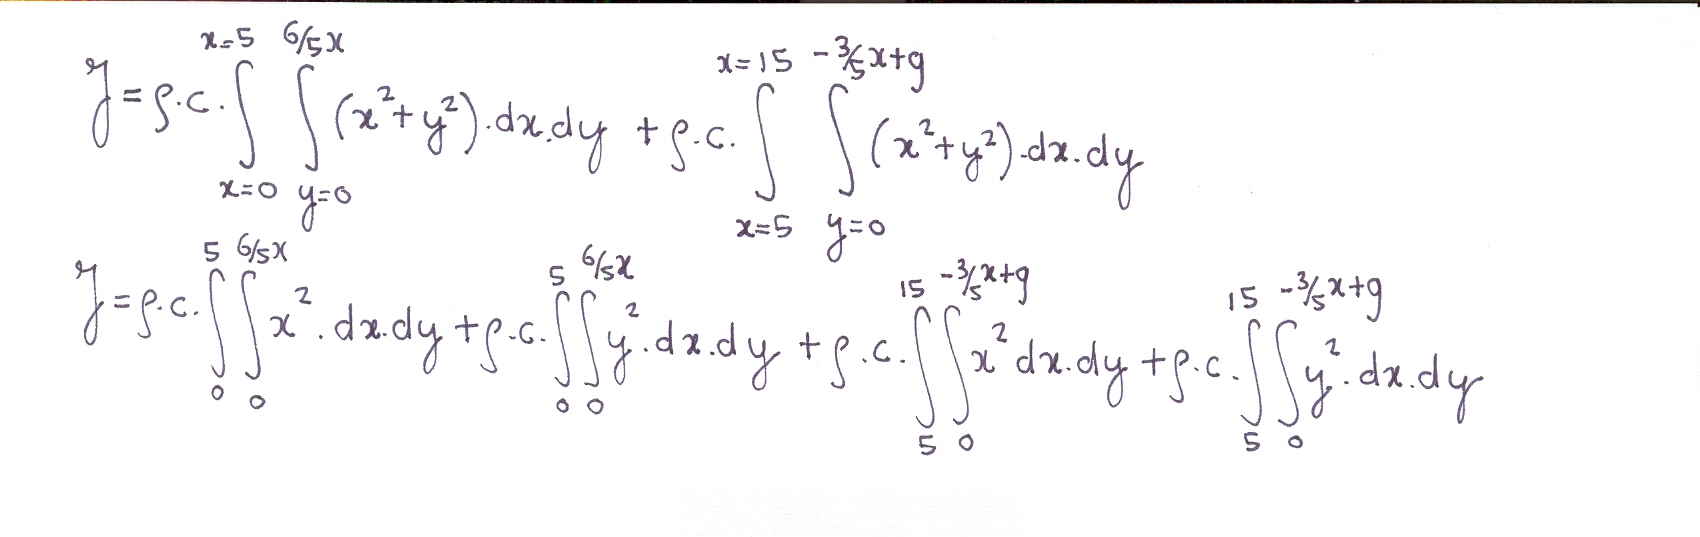 J = ρ.c. ∫_{x=0}^{x=5} ∫_{y=0}^{6/5x} (x²+y²).dx.dy + ρ.c. ∫_{x=5}^{x=15} ∫_{y=0}^{-3/5x+9} (x²+y²).dx.dy
J = ρ.c. ∫_{0}^{5} ∫_{0}^{6/5x} x².dx.dy + ρ.c. ∫_{0}^{5} ∫_{0}^{6/5x} y².dx.dy + ρ.c. ∫_{5}^{15} ∫_{0}^{-3/5x+9} x² dx.dy + ρ.c. ∫_{5}^{15} ∫_{0}^{-3/5x+9} y².dx.dy